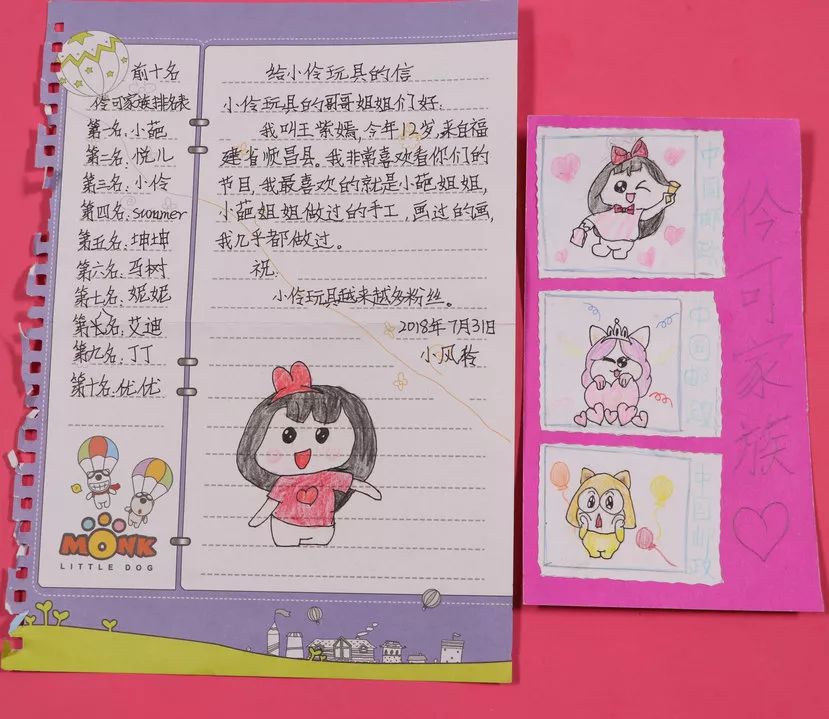 前十名
伶可家族排名表
第一名:小葩
第二名:悦儿
第三名:小伶
第四名:summer
第五名:坤坤
第六名:马树
第七名:妮妮
第八名:艾迪
第九名:丁丁
第十名:优优
MONK
LITTLE DOG
给小伶玩具的信
小伶玩具的哥哥姐姐们好:
我叫王紫嫣,今年12岁,来自福
建省顺昌县。我非常喜欢看你们的
节目,我最喜欢的就是小葩姐姐,
小葩姐姐做过的手工,画过的画,
我几乎都做过。
祝:
小伶玩具越来越多粉丝。
2018年7月31日
小风铃
中国邮政
中国邮政
中国邮政
伶可家族